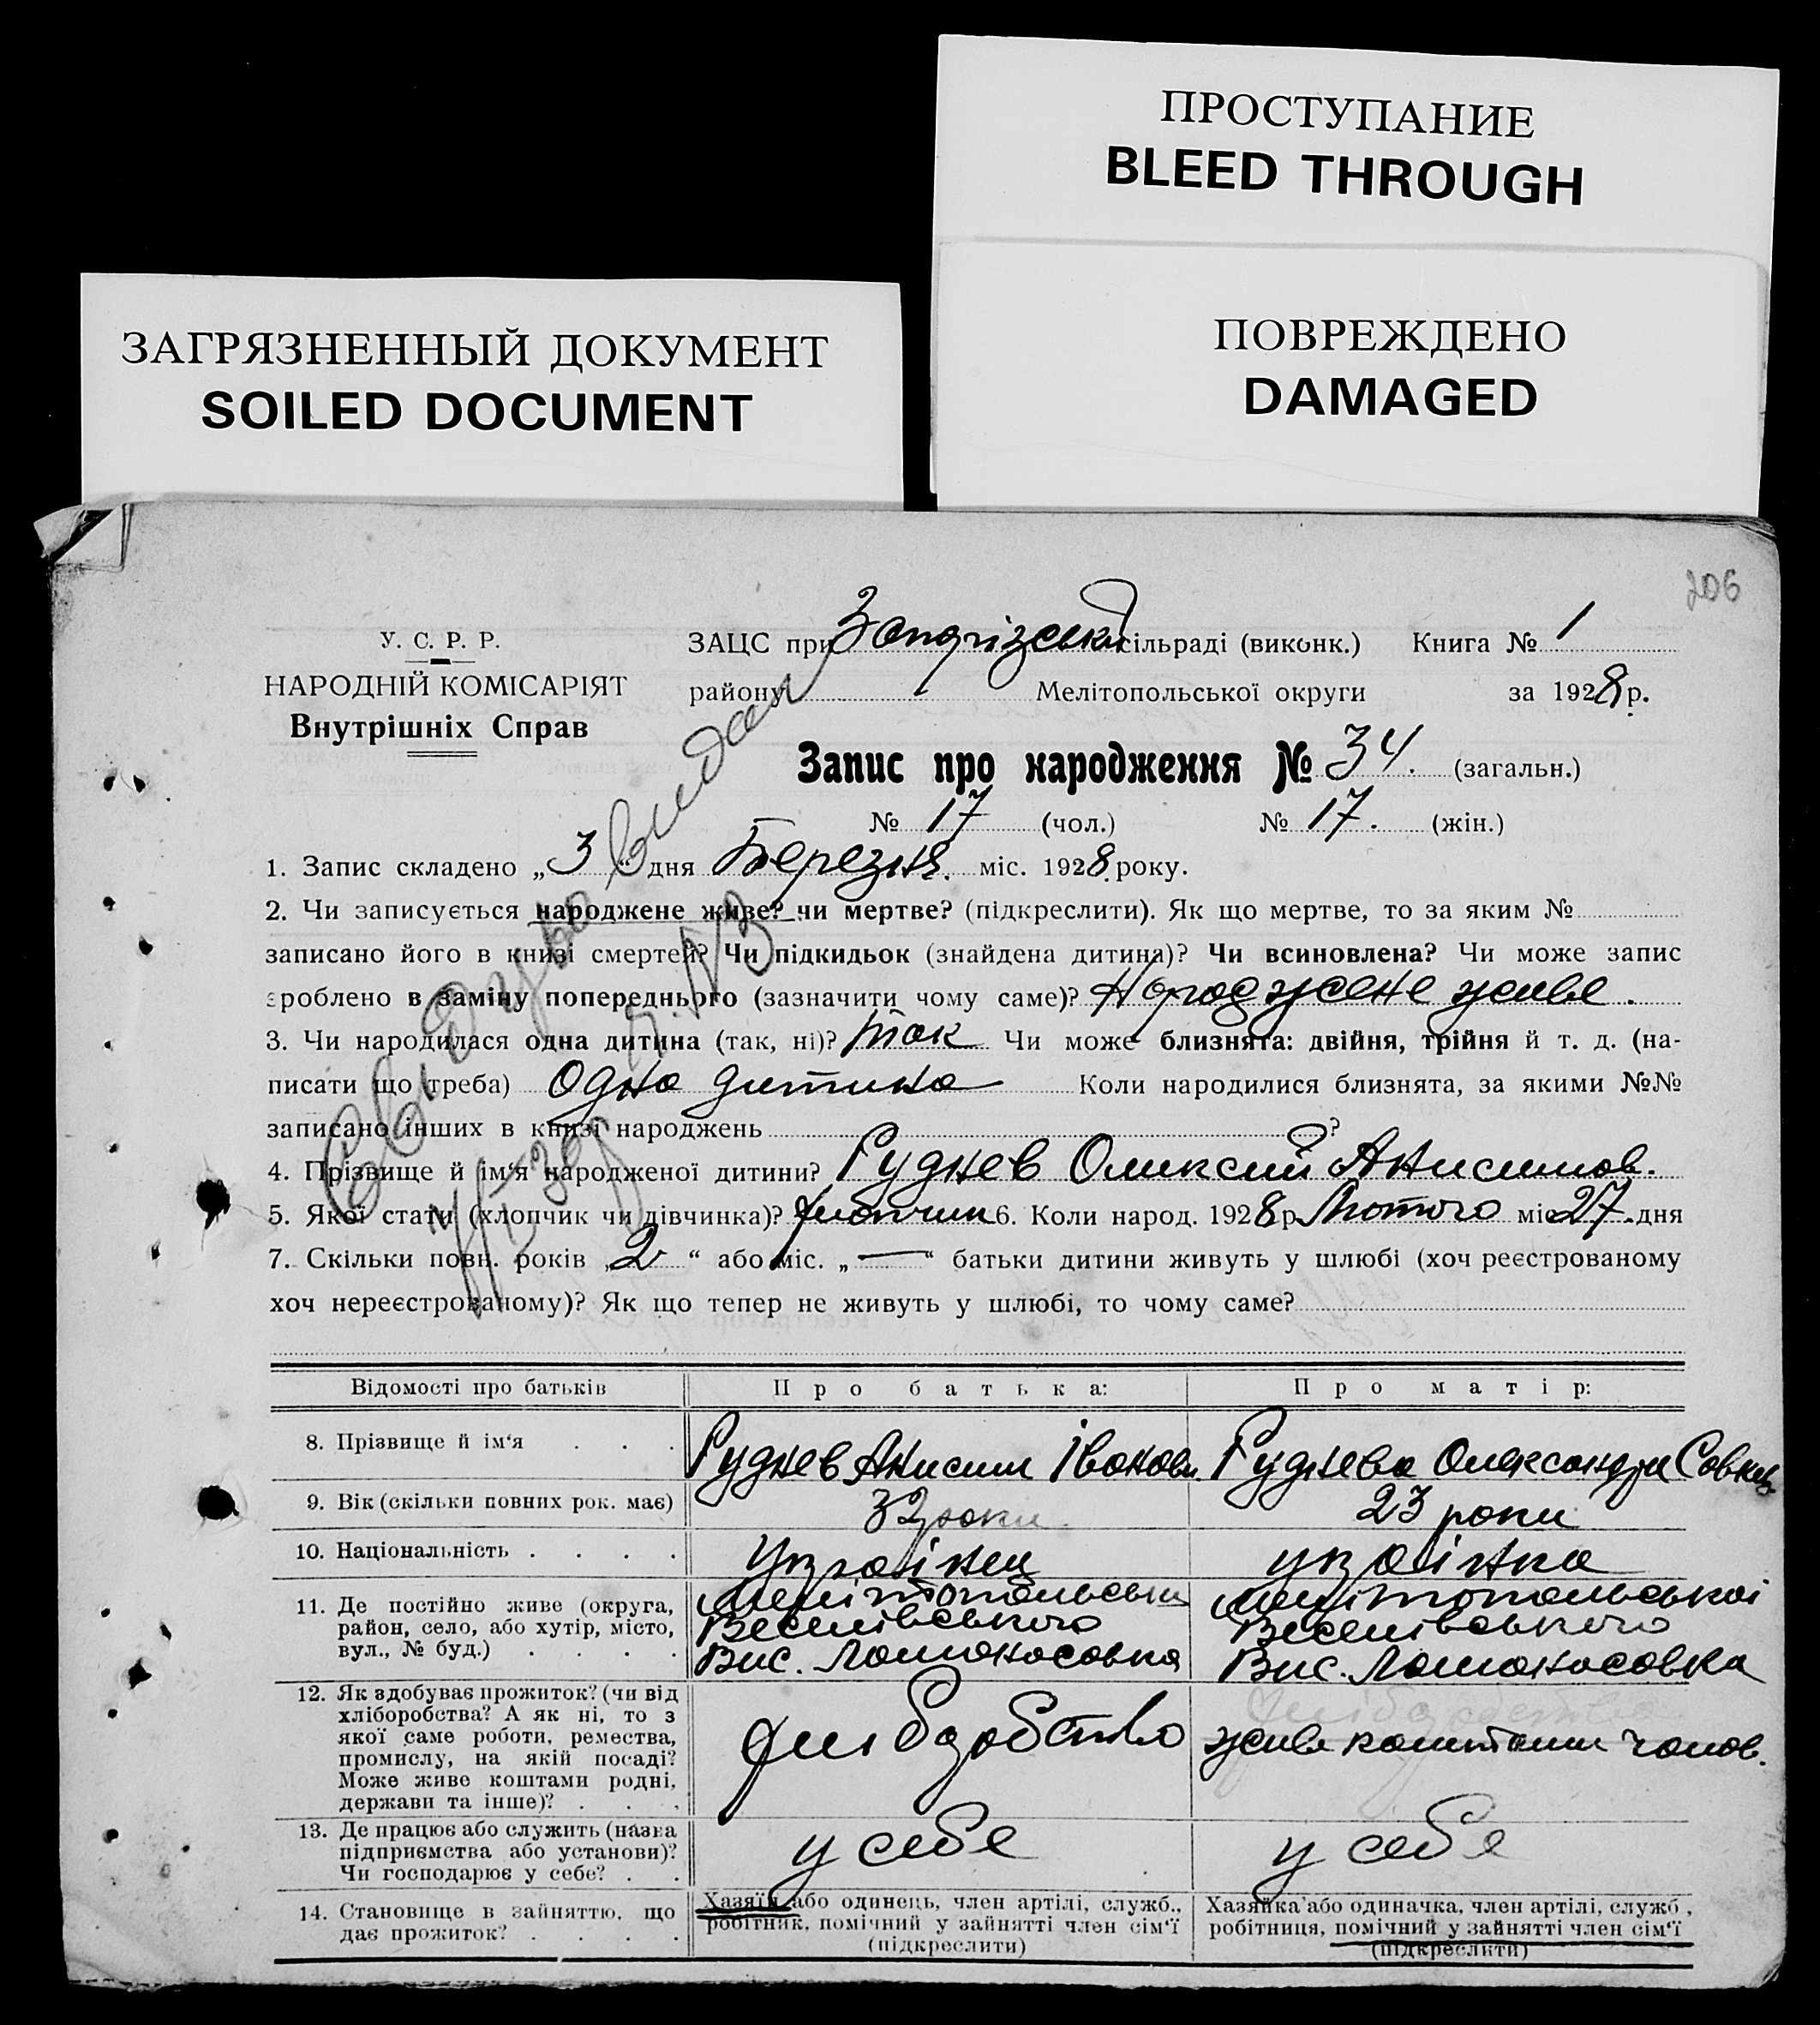 ПРОСТУПАНИЕ
BLEED THROUGH
ЗАГРЯЗНЕННЫЙ ДОКУМЕНТ
SOILED DOCUMENT
ПОВРЕЖДЕНО
DAMAGED
206
У. С. Р. Р.
НАРОДНІЙ КОМІСАРІЯТ
Внутрішніх Справ
ЗАЦС при сільраді (виконк.) Книга № 1
району Мелітопольської округи за 1928 р.
Запис про народження № 34. (загальн.)
№ 17 (чол.) № 17. (жін.)
1. Запис складено „3“ дня Березня. міс. 1928 року.
2. Чи записується народжене живе? чи мертве? (підкреслити). Як що мертве, то за яким №
записано його в книзі смертей? Чи підкидьок (знайдена дитина)? Чи всиновлена? Чи може запис
зроблено в заміну попереднього (зазначити чому саме)? Народжене живе.
3. Чи народилася одна дитина (так, ні)? так Чи може близнята: двійня, трійня й т. д. (на-
писати що треба) Одна дитина Коли народилися близнята, за якими №№
записано інших в книзі народжень ?
4. Прізвище й ім‘я народженої дитини? Руднев Олексий Анисимов.
5. Якої стати (хлопчик чи дівчинка)? хлопчик 6. Коли народ. 1928 р. Лютого міс 27. дня
7. Скільки повн. років „2“ або міс. „—“ батьки дитини живуть у шлюбі (хоч реєстрованому
хоч нереєстрованому)? Як що тепер не живуть у шлюбі, то чому саме?
Свидтцво видан
Відомості про батьків Про батька: Про матір:
8. Прізвище й ім‘я . . . Руднев Анисим Іванов. Руднева Олександра
9. Вік (скільки повних рок. має) 32 роки. 23 роки
10. Національність . . . . Українец українка
11. Де постійно живе (округа,
район, село, або хутір, місто,
вул., № буд.) . . . .
Мелітопольськи
Веселівського
Вис. Ломоносовка
Мелітопольськоі
Веселівського
Вис. Ломоносовка
12. Як здобуває прожиток? (чи від
хліборобства? А як ні, то з
якої саме роботи, ремества,
промислу, на якій посаді?
Може живе коштами родні,
держави та інше)? . . .
хлібробство
живе коштами чолов.
13. Де працює або служить (назва
підприємства або установи)?
Чи господарює у себе? . .
у себе
у себе
14. Становище в зайняттю, що
дає прожиток? . . . .
Хазяїн або одинець, член артілі, служб.,
робітник, помічний у зайнятті член сім‘ї
(підкреслити)
Хазяйка або одиначка, член артілі, служб.,
робітниця, помічний у зайнятті член сім‘ї
(підкреслити)